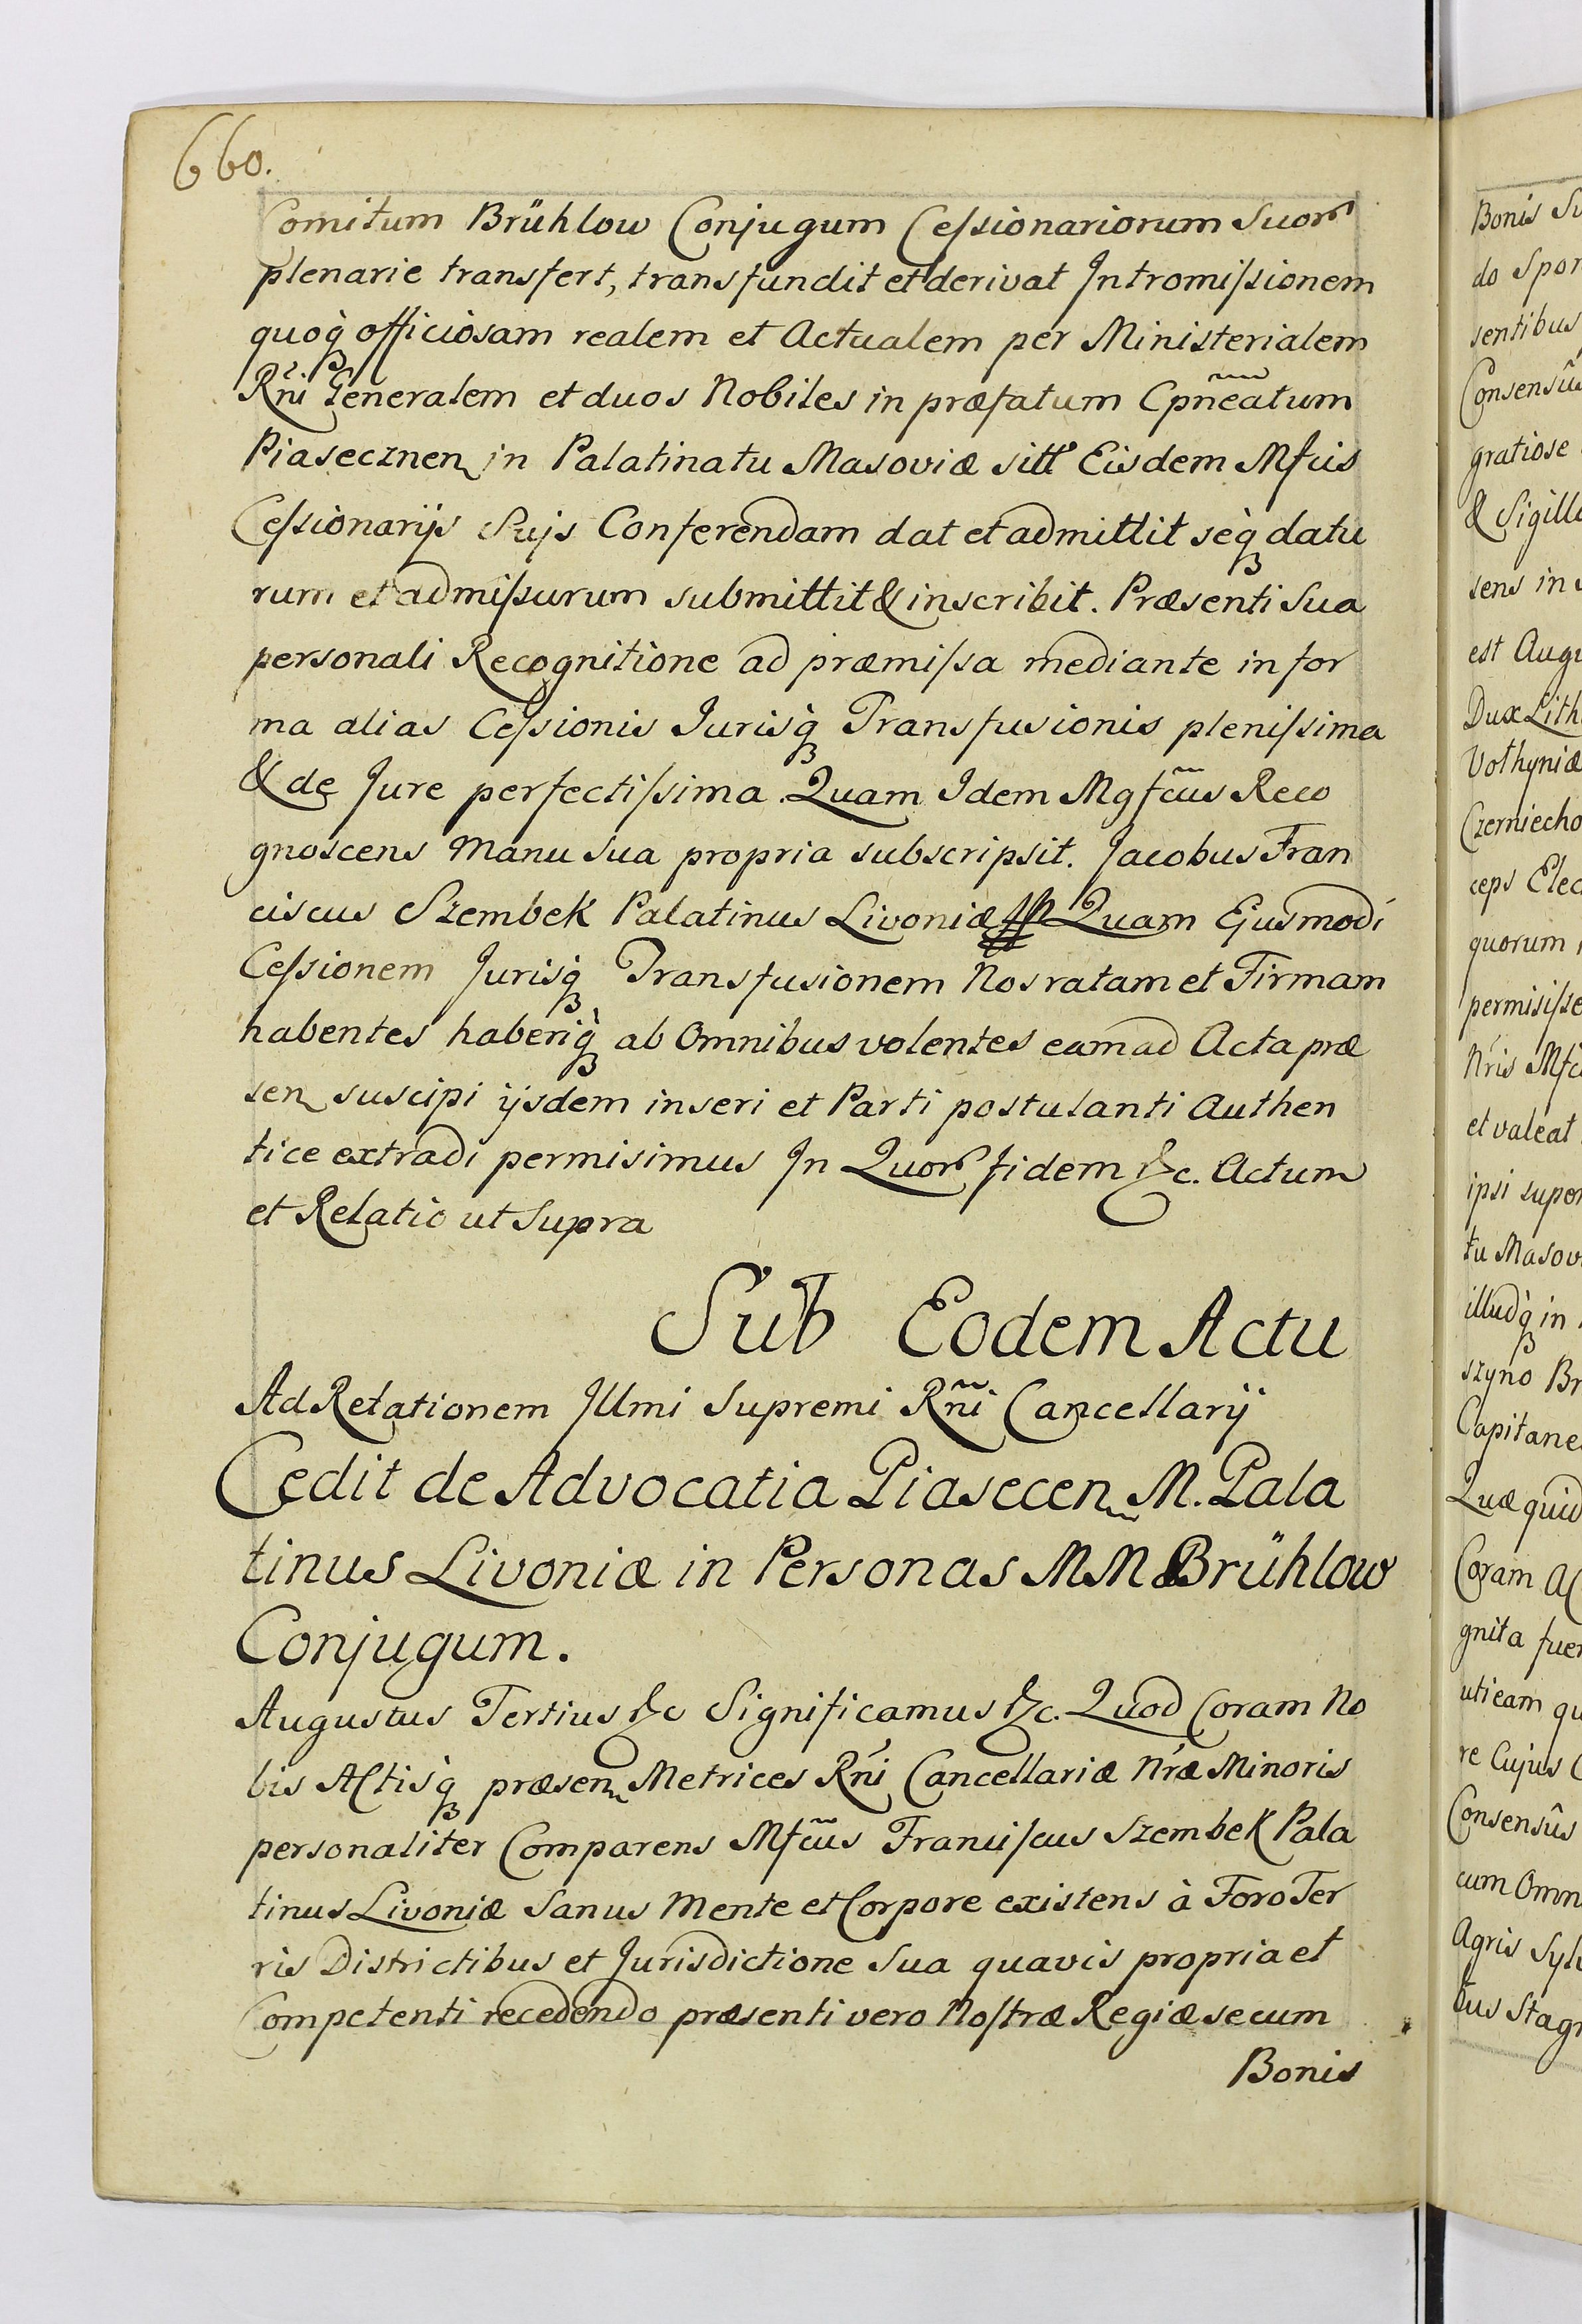 660.
Comitum Brühlow Conjugum Cessionariorum Suor
plenarie transfert, transfundit et derivat Intromissionem
quoq̀ officiosam realem et Actualem per Ministerialem
Rñi Generalem et duos Nobiles in præfatum Cpñeatum
Piasecznen in Palatinatu Masoviæ sitt Eisdem Mfcis
Cessionarijs Suis Conferendam dat et admittit seq̀ datu
rum et admissurum submittit & inscribit. Præsenti Sua
personali Recognitione ad præmissa mediante in for
ma alias Cessionis Jurisq̀ Transfusionis plenissima
& de Jure perfectissima. Quam Idem Mgfc̃us Reco
gnoscens Manu Sua propria subscripsit. Jacobus Fran
ciscus Szembek Palatinus Livoniæ Quam Ejusmodi
Cessionem Jurisq̀ Transfusionem Nos ratam et Firmam
habentes haberiq̀ ab Omnibus volentes eam ad Acta præ
sen suscipi ijsdem inseri et Parti postulanti Authen
tice extradi permisimus In Quor fidem &c. Actum
et Relatio ut Supra
Sub Eodem Actu
Ad Relationem Illmi Supremi Rñi Cancellarij
Cedit de Advocatia Piasecen M. Pala
tinus Livoniæ in Personas MM Brühlow
Conjugum.
Augustus Tertius &c Significamus &c. Quod Coram No
bis Actisq̀ præsen Metrices Rńi Cancellariæ Nŕæ Minoris
personaliter Comparens Mfc̃us Franciscus Szembek Pala
tinus Livoniæ Sanus Mente et Corpore existens à Foro Ter
ris Districtibus et Jurisdictione Sua quavis propria et
Competenti recedendo præsenti vero Nostræ Regiæ secum
Bonis
Bonis
do Spon
sentibus
Consensûs
gratiose
& Sigill
sens in
est Aug
Dux Lith
Volhyniæ
Czerniecho
ceps Elec
quorum
permisisse
Nŕis Mfc
et valeat
ipsi
tu Masov
illudq̀ in
szyno Br
Capitane
Quæ quid
Coram Ac
gnita fuer
uti eam qu
re Cujus
Consensûs
cum Omn
Agris Syl
tus Stagn